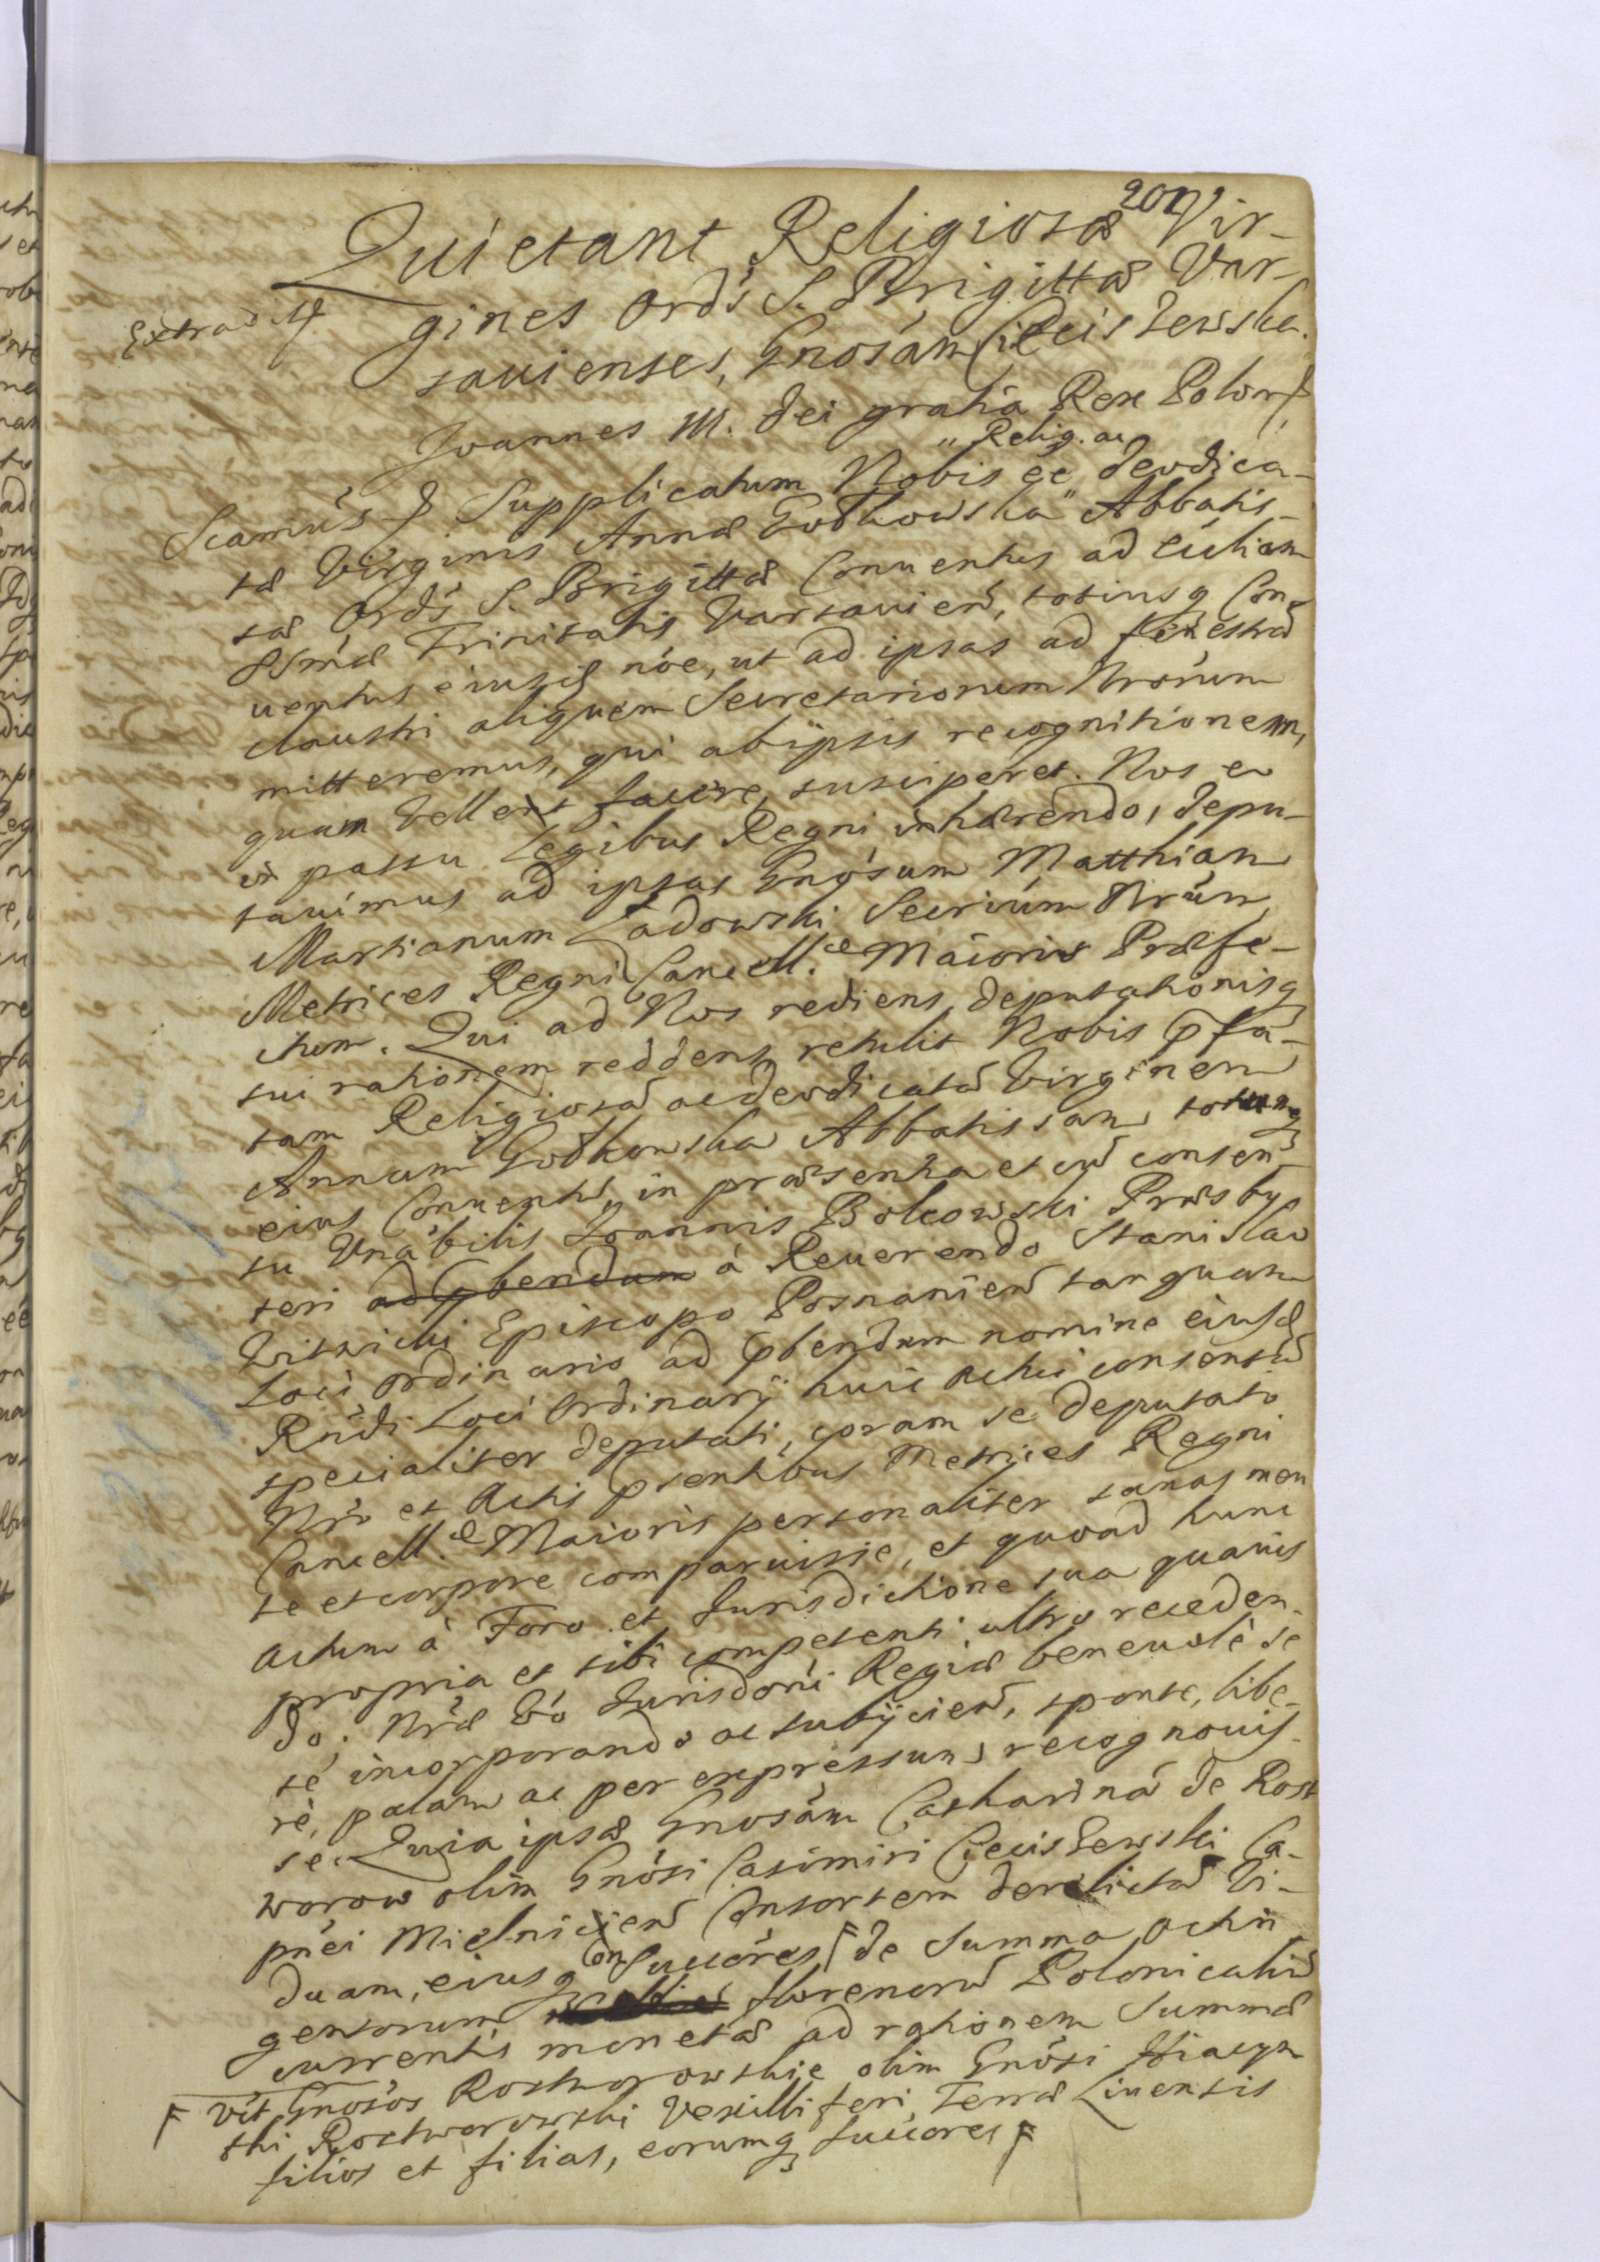 201
Quietant Religiosæ Vir-
gines Ordis S. Brigittæ Var-
Extradit
sauienses, Gnosam Ciecisżewska.
Joannes III. Dei gratia Rex Polor
„ Relig. ac
Scamus Supplicatum Nobis ee deodica-
tæ Virginis Annæ Godkowska „ Abbatis-
sæ Ordis S. Brigittæ Conuentus ad Ecliam
SSmæ Trinitatis Varsauien, totiusq Con-
uentus eiusd noe, ut ad ipsas ad fenestra
claustri aliquem Secretariorum Nrorum
mitteremus, qui ab ipsis recognitionem,
quam vellent facere, susciperet. Nos eo
in passu Legibus Regni inhærendo, depu-
tauimus ad ipsas Gnosum Matthian
Martianum Ladowski Secrium Nrum,
Metrices Regni Cancell.æ Maioris Præfe-
ctum. Qui ad Nos rediens, deputationisq
sui rationem reddens, retulit Nobis præfa-
tam Religiosa ac deodicata Virginem
Annam Godkowska Abbatissam totumq
eius Conuentu, in præsentia et cu consen-
su Vnabilis Joannis Bolcowski Præsby-
teri ad pbendum à Reuerendo Stanislao
Witwicki Episcopo Posnanien tanquam
Loci ordinario ad pbendum nomine eiusd
Rndi Loci Ordinarij huic actui consensu
specialiter deputati, coram se deputato
Nro et Actis psentibus Metrices Regni
Cancell.æ Maioris personaliter sanas men
te et corpore comparuisse, et quoad hunc
actum à Foro et Jurisdictione sua quauis
propria et sibi competenti ultro receden-
do, Nræ vo Jurisdoni Regiæ beneuolè se
se incorporando ac subijcien, sponte, libe-
rè, palam ac per expressum recognouis-
se. Quia ipsæ Gnosam Catharina de Rost
worow olim Gnosi Casimiri Ciecisżewski Ca-
pnei Mielnicien Consortem derelicta Vi-
duam, eiusq Consuccores F de Summa Octin
gentorum florenoru Polonicaliu
currentis monetæ ad rationem Summæ
F vit Gnosos Rostworowskie olim Gnosi Hiacyn
thi Rostworowski Vexilliferi Terræ Liuensis
filios et filias, eorumq succores F